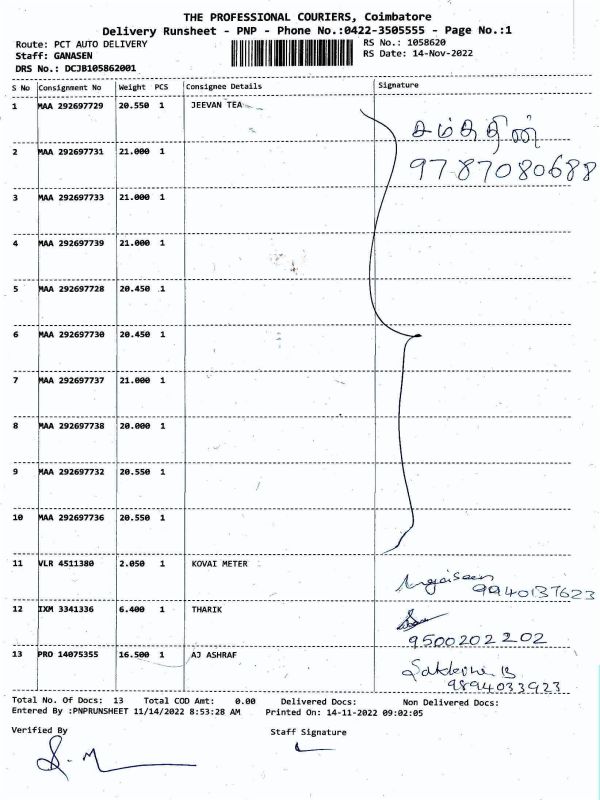 THE PROFESSIONAL COURIERS, Coimbatore
Delivery Runsheet - PNP - Phone No.:0422-3505555 - Page No.:1
Route: PCT AUTO DELIVERY
RS No.: 1058620
Staff: GANASEN
RS Date: 14-Nov-2022
DRS No.: DCJB105862001
S No Consignment No Weight PCS Consignee Details Signature
1 MAA 292697729 20.550 1 JEEVAN TEA
2 MAA 292697731 21.000 1
9787080688
3 MAA 292697733 21.000 1
4 MAA 292697739 21.000 1
5 MAA 292697728 20.450 1
6 MAA 292697730 20.450 1
7 MAA 292697737 21.000 1
8 MAA 292697738 20.000 1
9 MAA 292697732 20.550 1
10 MAA 292697736 20.550 1
11 VLR 4511380 2.050 1 KOVAI METER
9940137623
12 IXM 3341336 6.400 1 THARIK
9500202202
13 PRO 14075355 16.500 1 AJ ASHRAF
9894033923
Total No. Of Docs: 13 Total COD Amt: 0.00 Delivered Docs: Non Delivered Docs:
Entered By :PNPRUNSHEET 11/14/2022 8:53:28 AM Printed On: 14-11-2022 09:02:05
Verified By Staff Signature